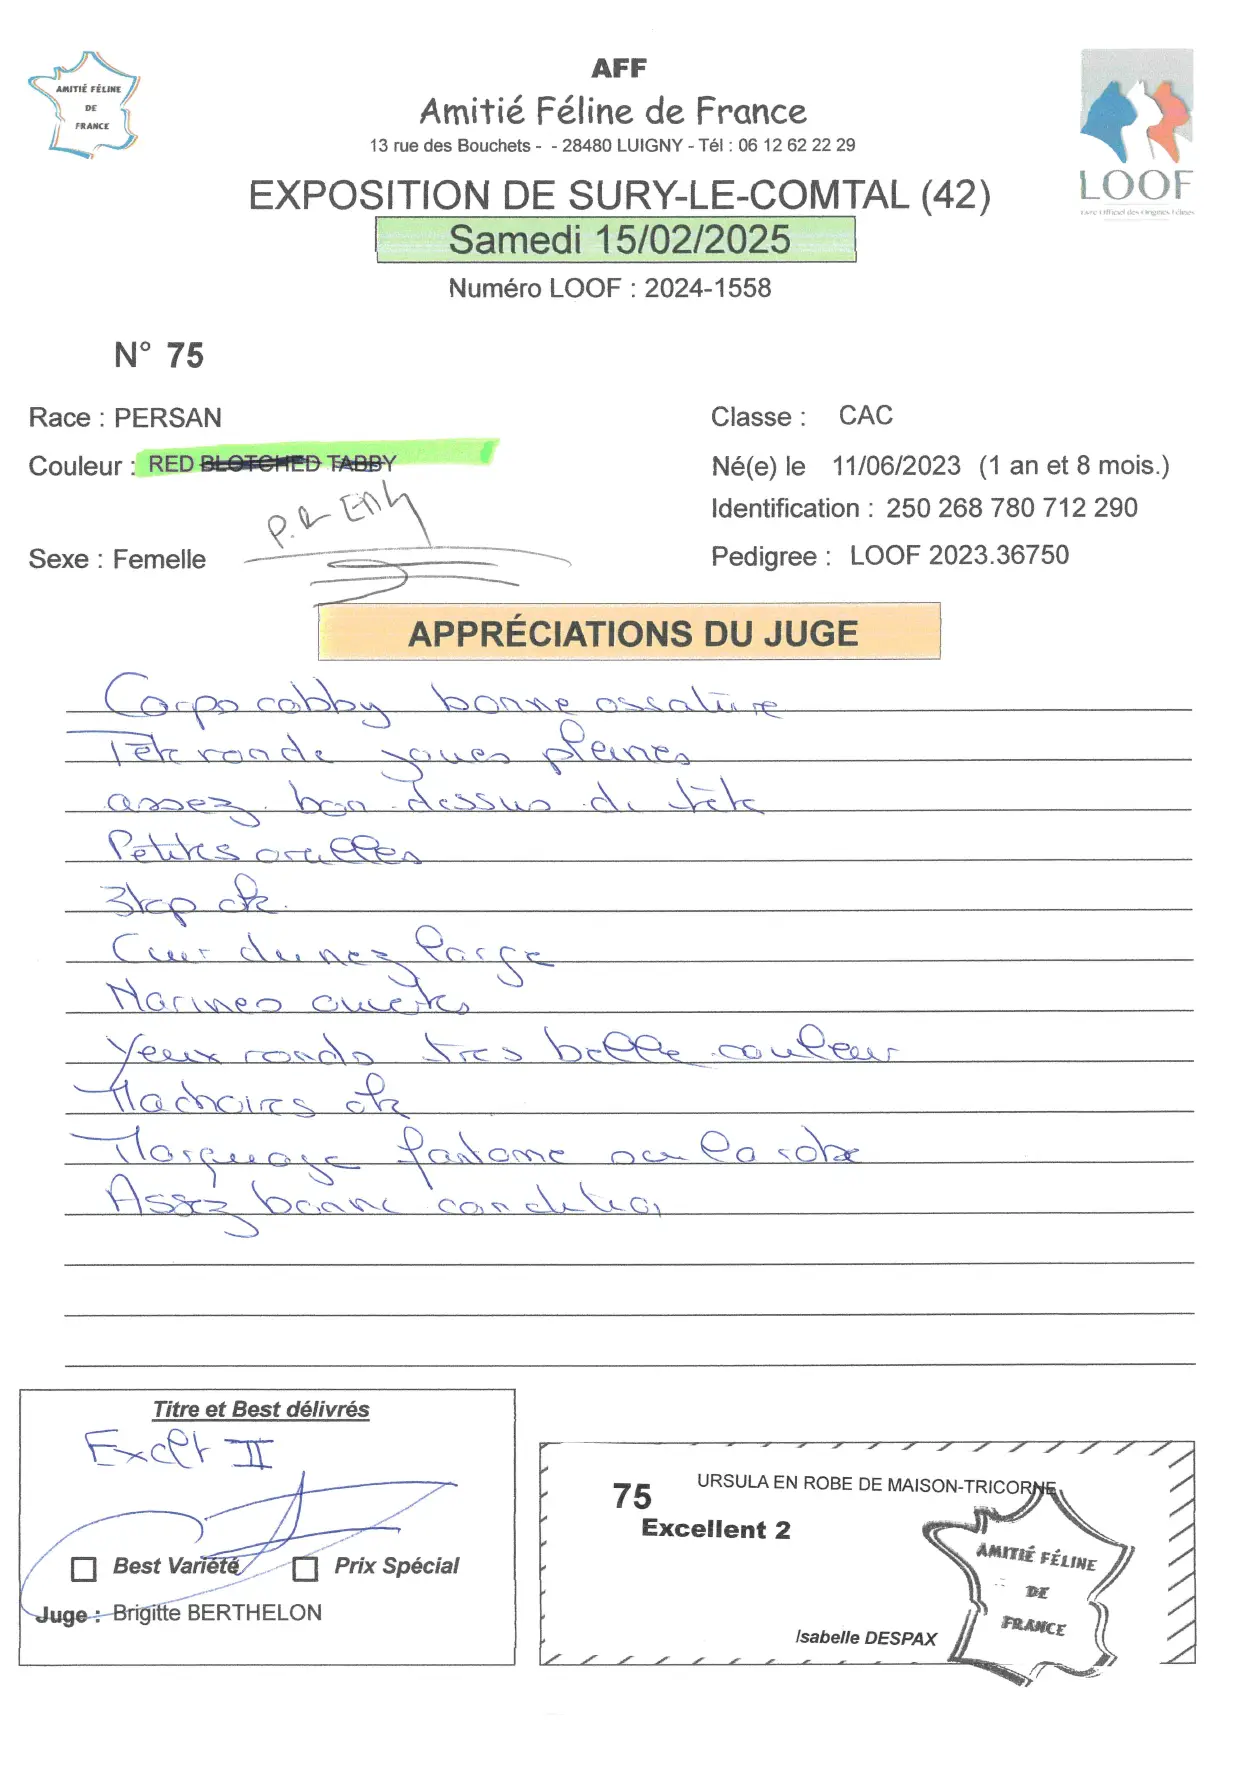 AMITIÉ FÉLINE
DE
FRANCE
AFF
Amitié Féline de France
13 rue des Bouchets - - 28480 LUIGNY - Tél : 06 12 62 22 29
LOOF
Livre Officiel des Origines Félines
EXPOSITION DE SURY-LE-COMTAL (42)
Samedi 15/02/2025
Numéro LOOF : 2024-1558
N° 75
Race : PERSAN
Classe : CAC
Couleur : RED BLOTCHED TABBY
Né(e) le 11/06/2023 (1 an et 8 mois.)
Identification : 250 268 780 712 290
Sexe : Femelle
Pedigree : LOOF 2023.36750
APPRÉCIATIONS DU JUGE
Corps cobby bonne ossature
Tête ronde joues pleines
assez bon dessus de tête
Petites oreilles
Stop ok
Cuir du nez large
Narines ouvertes
Yeux ronds très belle couleur
Machoires ok
Marquage fantome sur la robe
Assez bonne condition
Titre et Best délivrés
Exclt II
Best Variété
Prix Spécial
Juge : Brigitte BERTHELON
75
URSULA EN ROBE DE MAISON-TRICORNE
Excellent 2
Isabelle DESPAX
AMITIÉ FÉLINE
DE
FRANCE